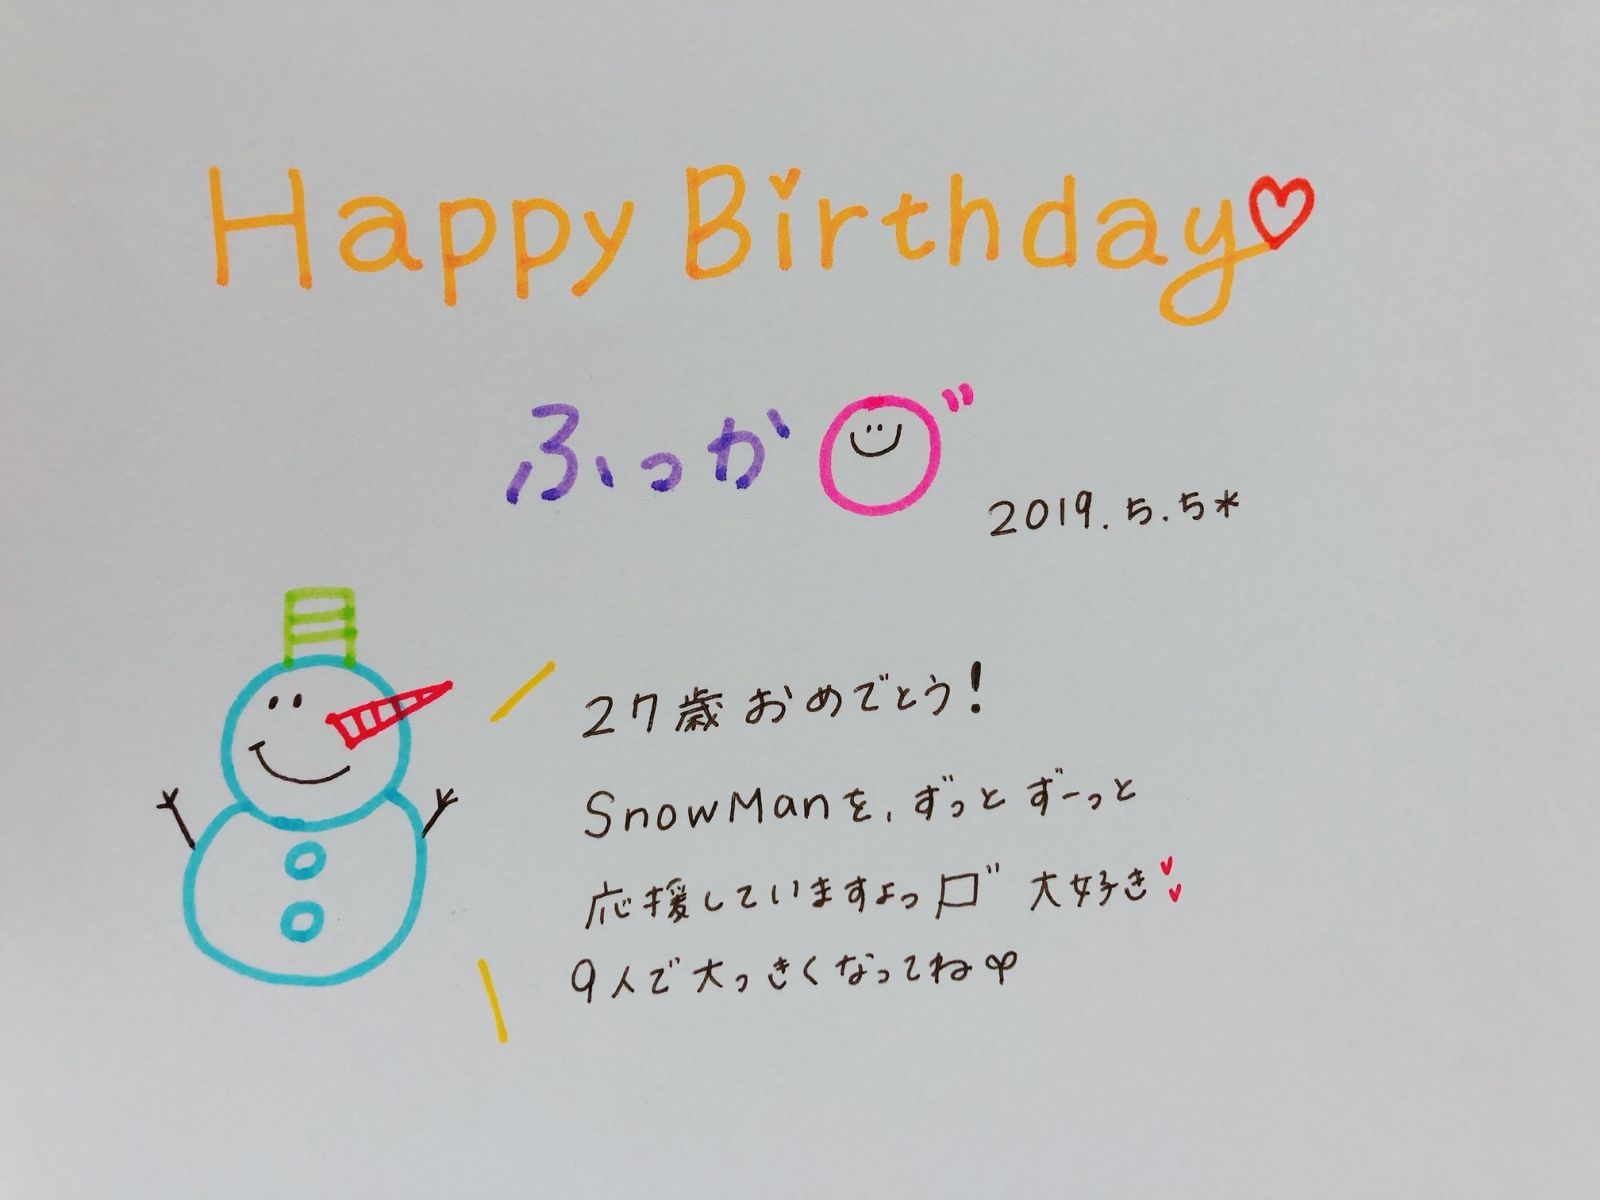 Happy Birthday♡
ふっか
2019.5.5*
27歳おめでとう!
SnowManを、ずっとずーっと
応援していますよっ 大好き
9人で大っきくなってね